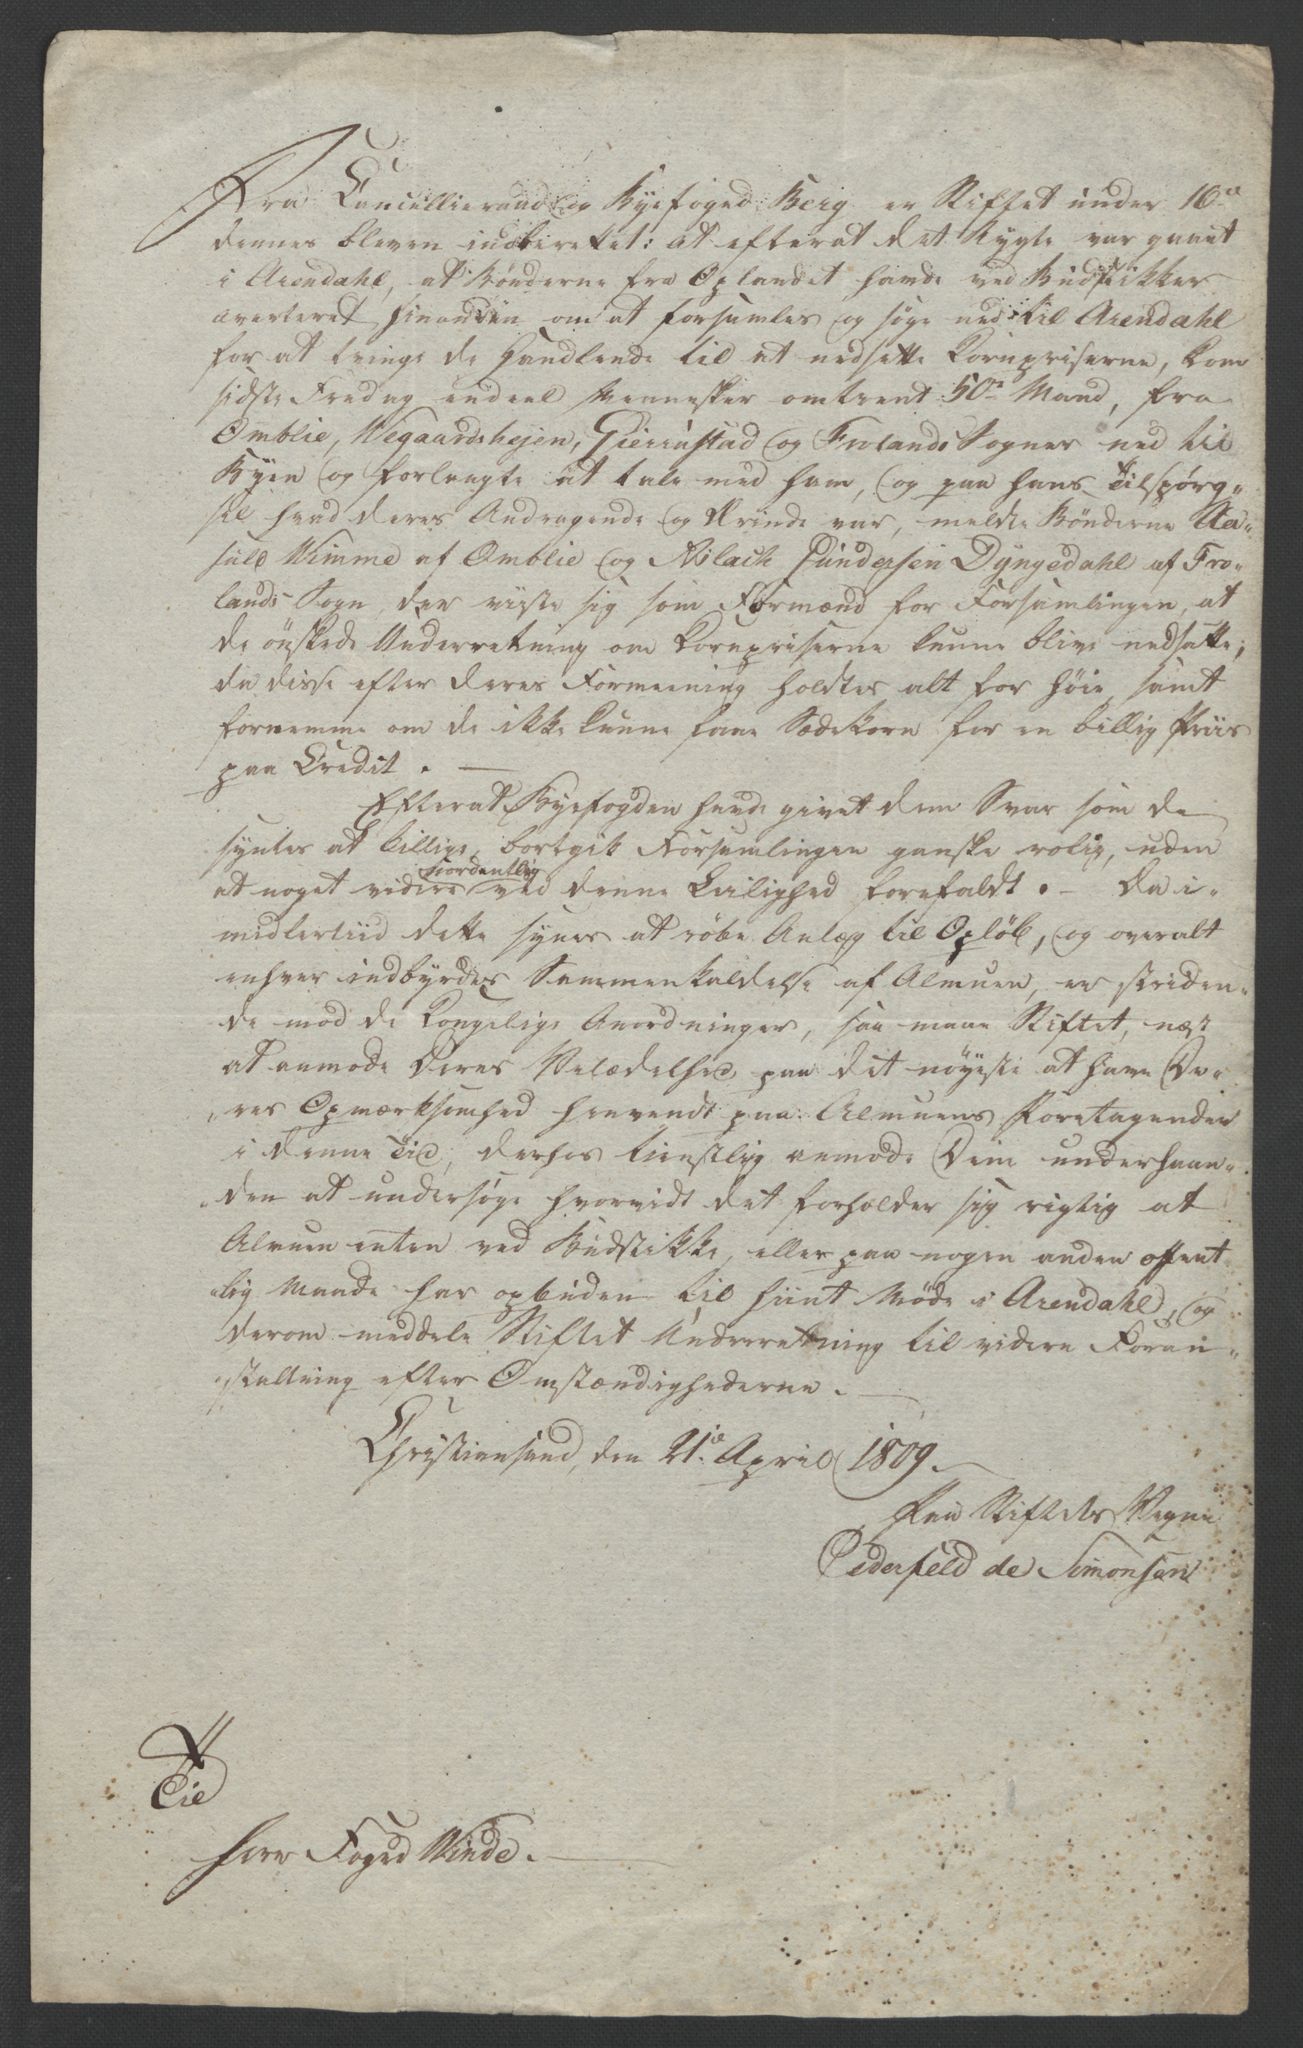 Fra Cancellieraad og Byefoged Berg er Stiftet under 16de
dennes bleven indberettet: at efterat det Rygte var gaaet
i Arendahl, at Bønderne fra Oplandet havde ved Budstikker
averteret hinanden om at forsamles og søge ned til Arendahl
for at tvinge de Handlende til at nedsette Kornpriserne, kom
sidste Fredag endeel Mennesker omtrent 50 Mand, fra
Omblie, Wegaardshejen, Gierrestad og Frolands Sogner ned til
Byen og forlangte at tale med ham, og paa hans Tilspørg-
sel hvad deres Andragende og Ærinde var, meldte Bønderne Aa-
suld Wimme af Omblie og Aslach Gundersen Dyngedahl af Fro-
lands Sogn, der viiste sig som Formænd for Forsamlingen, at
de ønskede Underretning om Kornpriserne kunne blive nedsatte,
da disse efter deres Formeening holdtes alt for høie, samt
fornemme om de ikke kunne faae Sædekorn for en billig Priis
paa Credit. —
Efterat Byefogden havde givet dem Svar som de
syntes at billige, bortgik Forsamlingen ganske rolig, uden
at noget videre uordentlig ved denne Leilighed forefaldt. – Da i-
midlertiid dette synes at røbe Anlæg til Opløb, og overalt
enhver indbyrdes Sammenkaldelse af Almuen, er striden-
de mod de Kongelige Anordninger, saa maae Stiftet, næst
at anmode Deres Velædelhed paa det nøyeste at have De-
res Opmærksomhed henvendt paa Almuens Foretagender
i denne Tid, derhos tienstlig anmode Dem underhaan-
den at undersøge hvorvidt det forholder sig rigtig at
Almuen enten ved Budstikke, eller paa nogen anden offent
lig Maade har opbuden til hiint Møde i Arendahl, og
derom meddele Stiftet Underretning til videre Foran-
staltning efter Omstændighederne. —
Christiansand, den 21de April 1809. —
Paa Stiftets Vegne
Oederfeld de Simonsen
Til
Herr Foged Winde. —